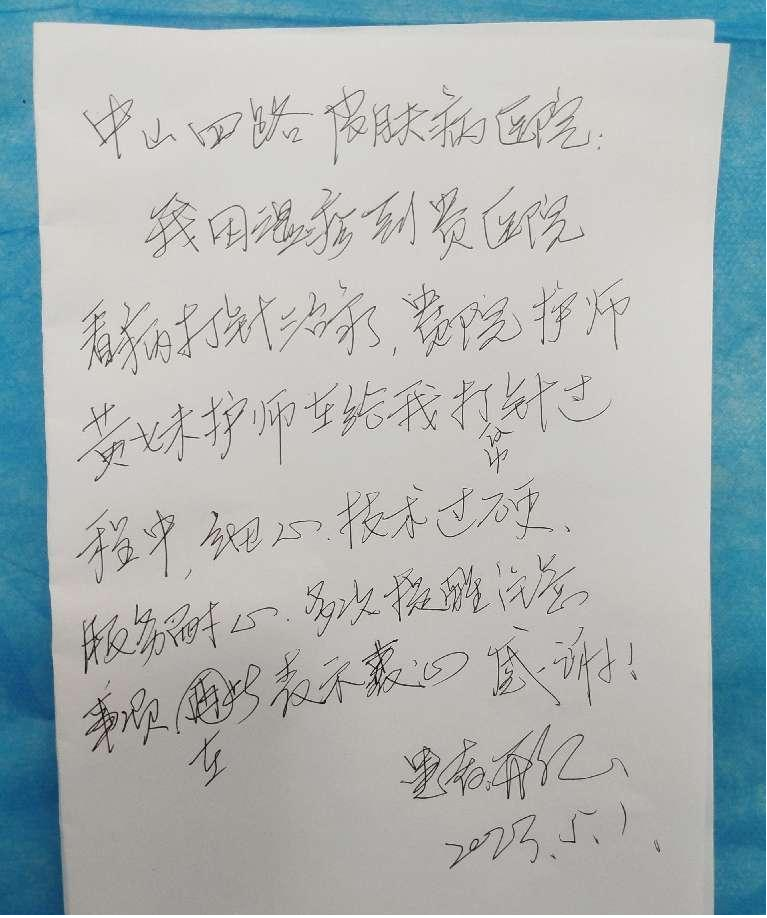 中山四路皮肤病医院:
我因湿疹到贵医院
看病打针治疗,贵院护师
黄妹护师在给我打针过
程中,细心.技术过硬、
服务耐心.多次提醒注意
事项 再此表示衷心感谢!
在
患者
2023.5.1.